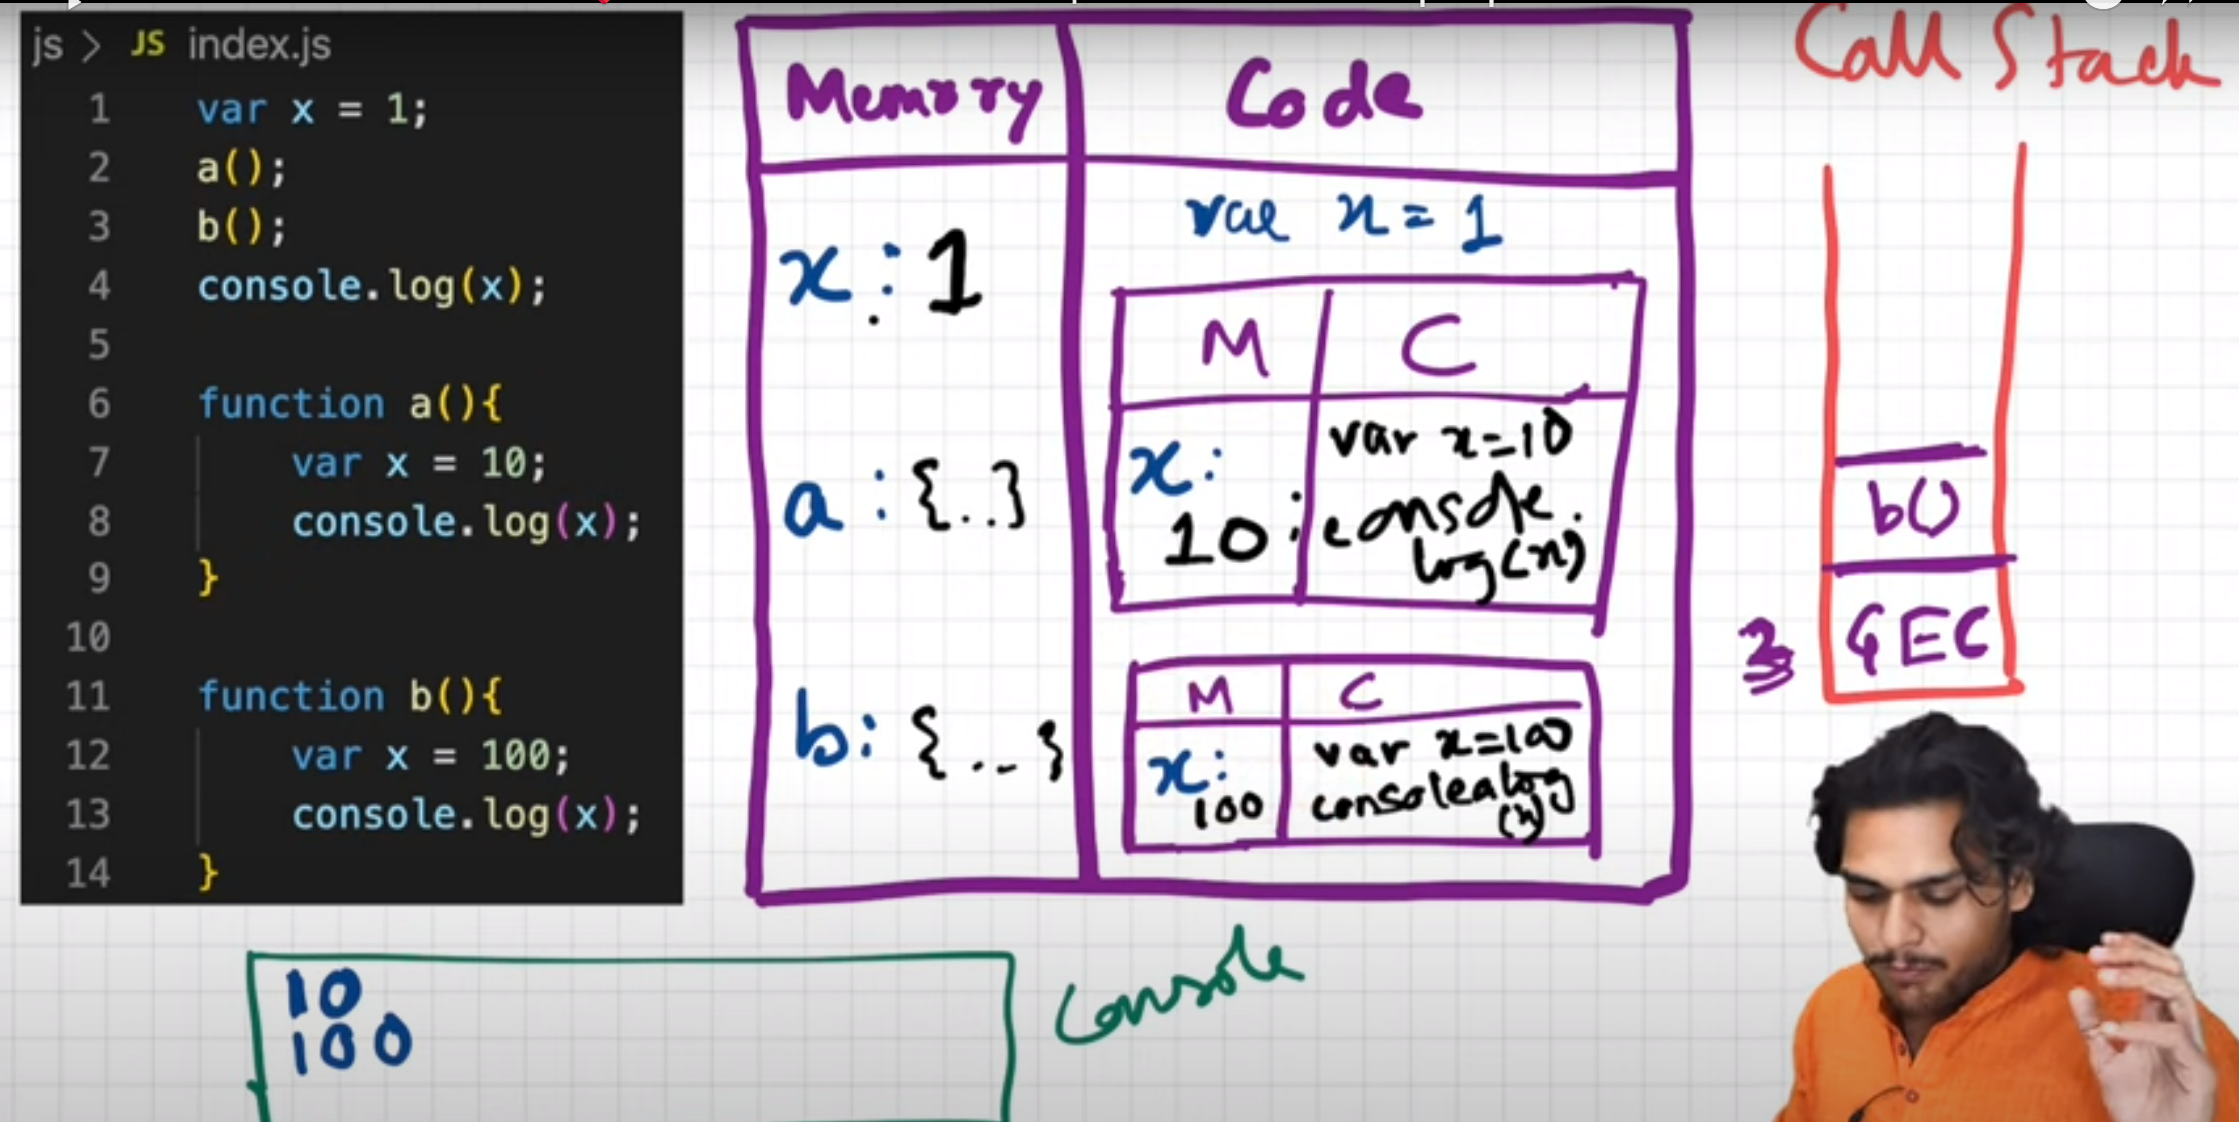 js > JS index.js
1 var x = 1;
2 a();
3 b();
4 console.log(x);
5
6 function a(){
7 var x = 10;
8 console.log(x);
9 }
10
11 function b(){
12 var x = 100;
13 console.log(x);
14 }
Memory Code
x : 1
a : {..}
b : {..}
var x = 1
M C
x: 10
var x=10
console.
log(x)
M C
x: 100
var x=100
console.log
(x)
Call Stack
b()
GEC
3
Console
10
100